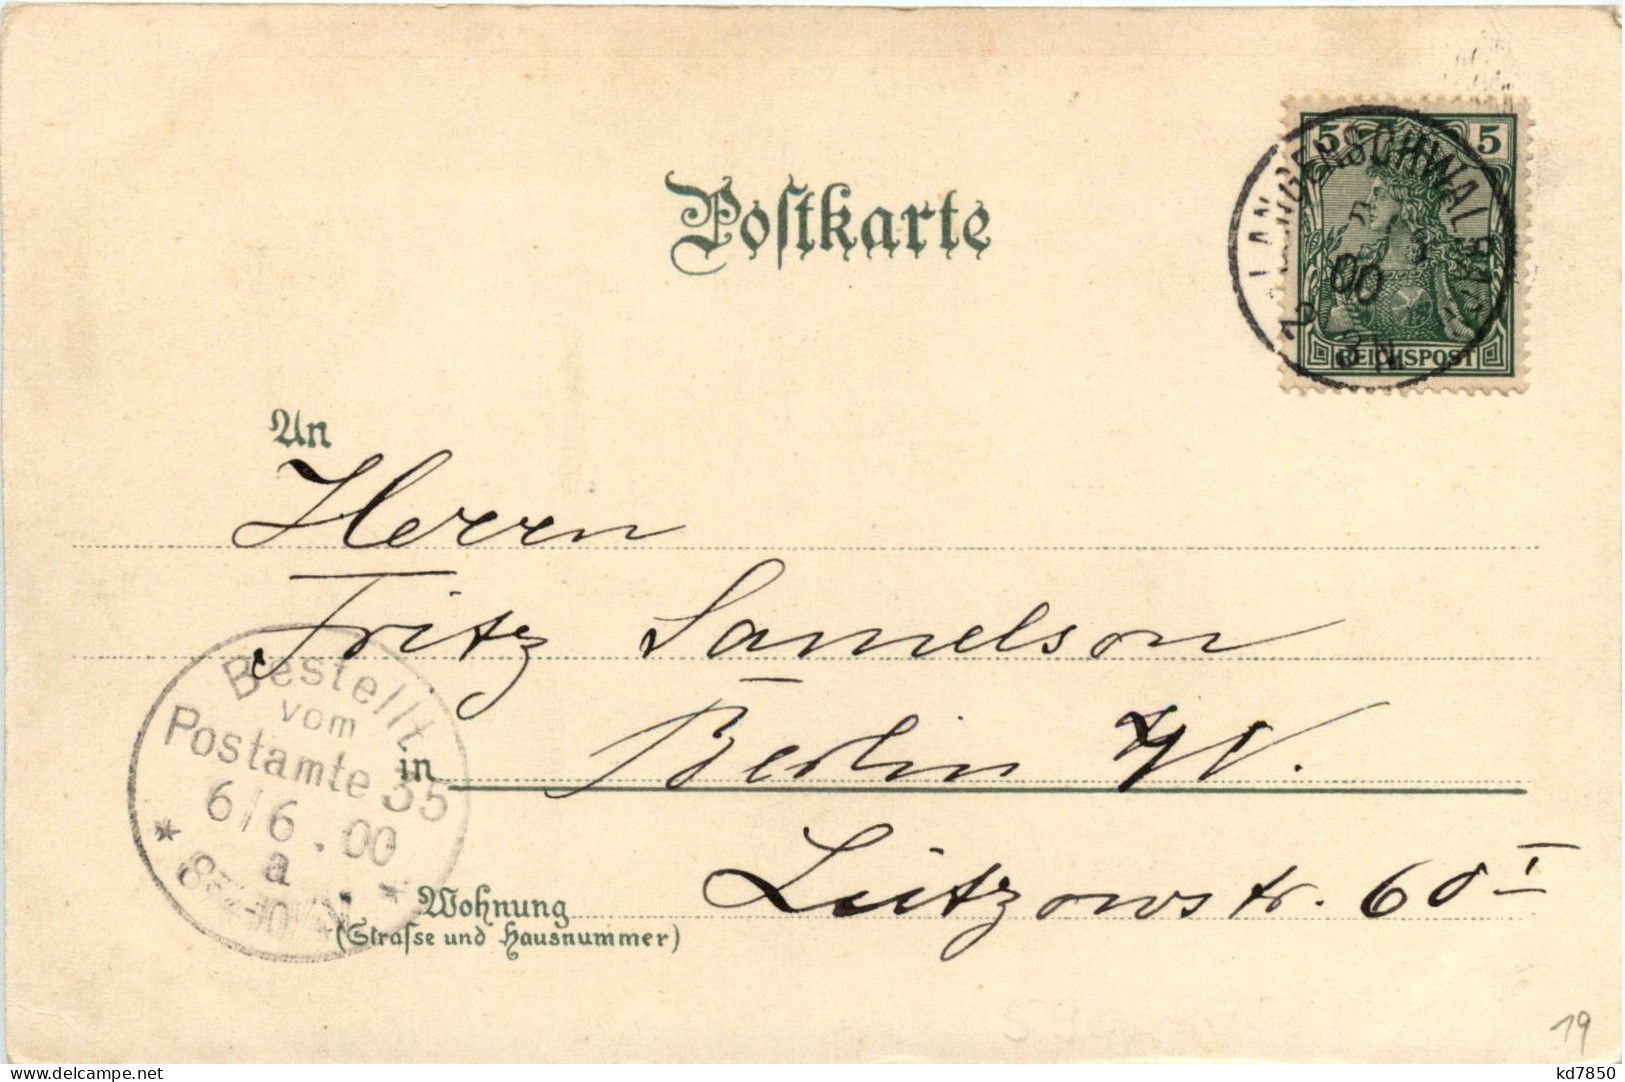 Postkarte
5 5
REICHSPOST
LANGENSCHWALBACH
00
2-3N
An
Herrn
Fritz Samelson
in Berlin W.
Wohnung
(Strasse und Hausnummer)
Lützowstr. 60 I
Bestellt
vom
Postamte 35
6/6.00
a
19
kd7850